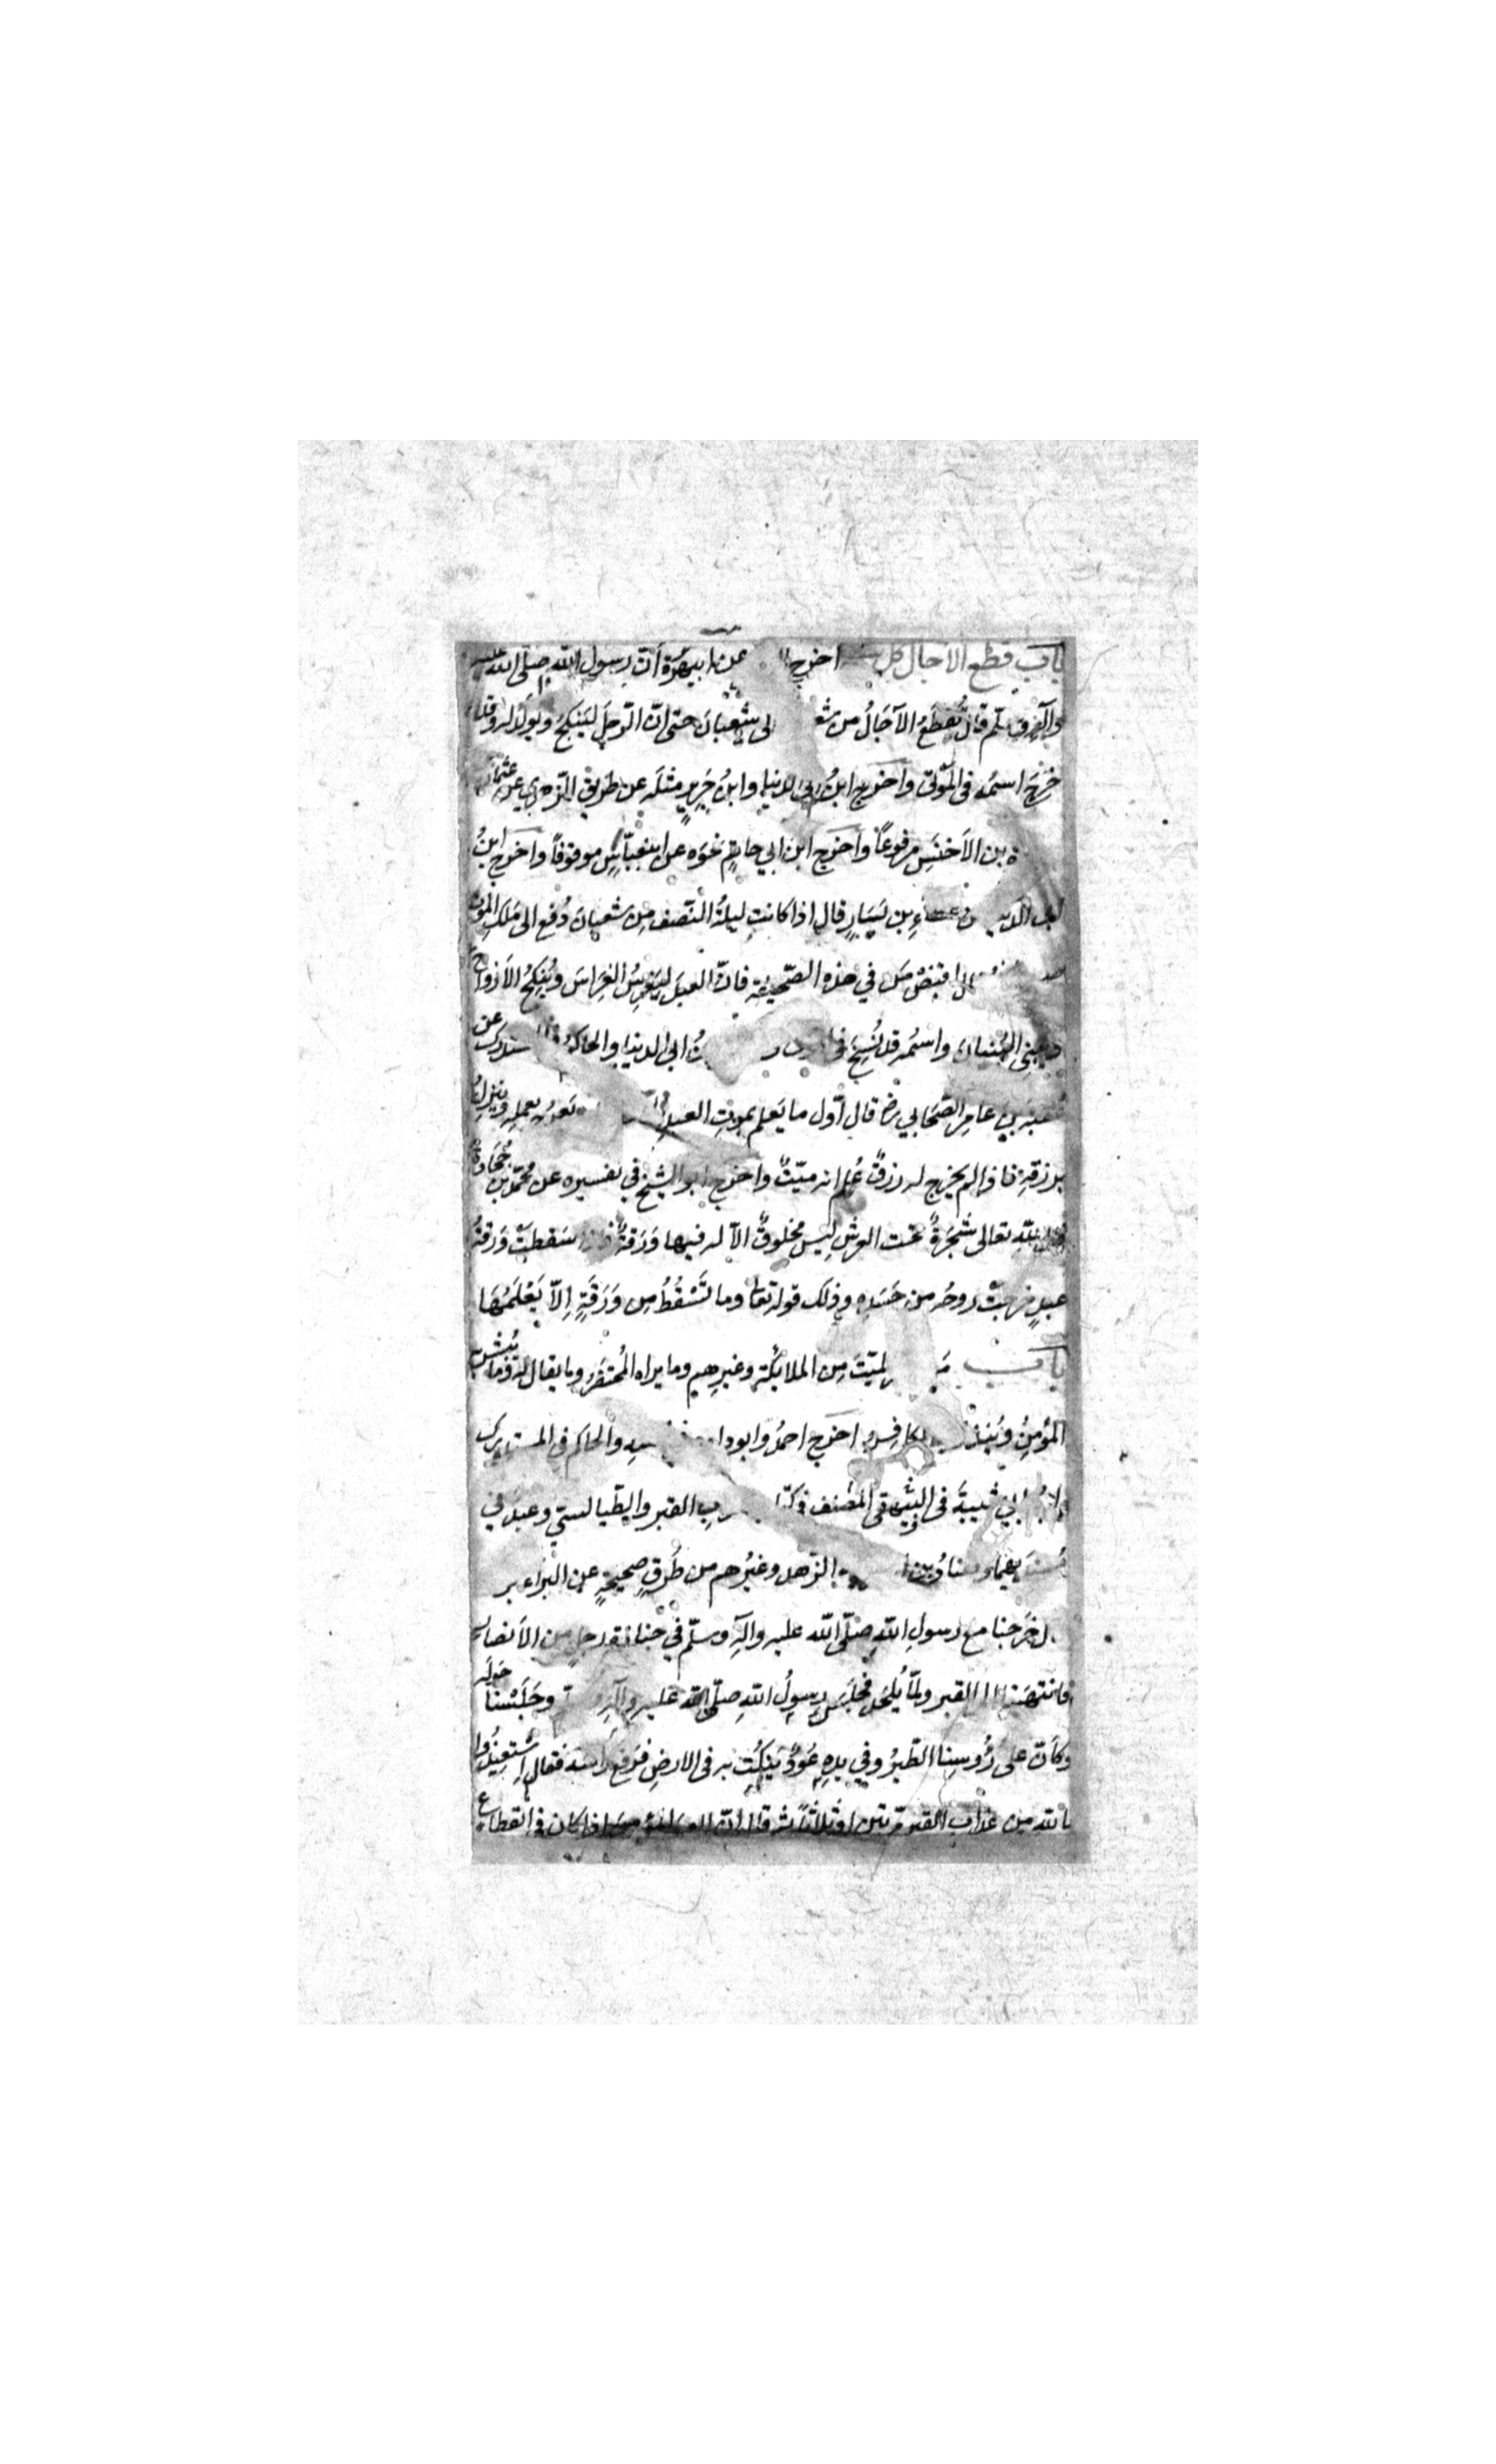 باب قطع الآجال كل اخرج عن ابي هريرة أن رسول الله صلى الله عليه
وآله وسلم قال تُقطَعُ الآجَالُ من شعبان لى شعبانَ حتى انّ الرّجلَ ليَنكِحُ ويولَدُ له وقد
خرَجَ اسمُه فى المَوتى واخرج ابنُ ابى الدنيا وابنُ جَرِيرٍ مثلَه عن طريق الزهري عن عثمان
ة بن الاَخنَسِ مرفوعًا واخرج ابن ابي حاتِمٍ نحوَه عن ابن عبّاسٍ موقوفًا واخرج ابنُ
ابى الدنيا عن عطاءِ بن يَسَارٍ قال اذا كانت ليلةُ النّصف مِن شعبان دُفع الى مَلَكِ الموتِ
اقبَضْ مَن في هذه الصّحيفة فانّ العبدَ ليَغرِسُ الغِرَاسَ ويُنكِحُ الاَزواجَ
ويبنِى البُنيانَ واسمُه قد نُسِخَ فى ابنُ ابى الدنيا والحاكمُ فى المستدرك عن
عقبةَ بنِ عامِرٍ الصّحَابي رض قال اوّل ما يَعلم بموتِ العبدِ يَعرُج بعملِه وينزِلُ
برزقِه فاذا لم يخرج له رزقٌ عُلِم انه ميّتٌ واخرج ابو الشيخ في تفسيره عن محمّد بن جُحَادةَ
قال للهِ تعالى شَجَرةٌ تحت العرشِ ليسَ مخلوقٌ الّا له فيها وَرَقةٌ فاذا سَقطَتْ وَرَقةُ
عبدٍ خرجتْ روحُه من جَسَدِه وذلك قوله تعا وما تَسْقُطُ مِن وَرَقَةٍ اِلّا يَعْلَمُهَا
باب مَن الميّتَ مِن الملائكةِ وغيرِهم وما يراه المُحتضَرُ وما يقال له وما يُبشّر به
المؤمِنُ ويُنذَرُ به الكافِرُ اخرج احمدُ وابو داود فى سننه والحاكم فى المستدرك
وابنُ ابي شيبةَ فى البيهقى المصنف فى كتاب عذابِ القبر والطّيالستي وعبدُ في
مُسنَديهما وهنادُ بن السرى فى الزّهد وغيرُهم من طُرُقٍ صحيحةٍ عن البراء بر
ل خَرَجنا مع رسولِ اللهِ صلّى الله عليه وآلِه وسلّم في جنازة رجلٍ من الاَنصار
فانتهَينا الى القبر ولمّا يُلحَد فجلَسَ رسولُ اللهِ صلّى الله عليه وآلِه وجَلَسْنا حَولَه
وكاَنّ على رُؤوسِنا الطّيرُ وفي يدِه عُودٌ يَنكُت به فى الارضِ فرَفع رَأسَه فقال اِسْتَعِيذُوا
باللهِ مِن عذابِ القبرِ مرّتين او ثلاثًا ثم قال انّ العبدَ المؤمنَ اذا كان فى انقطاعٍ